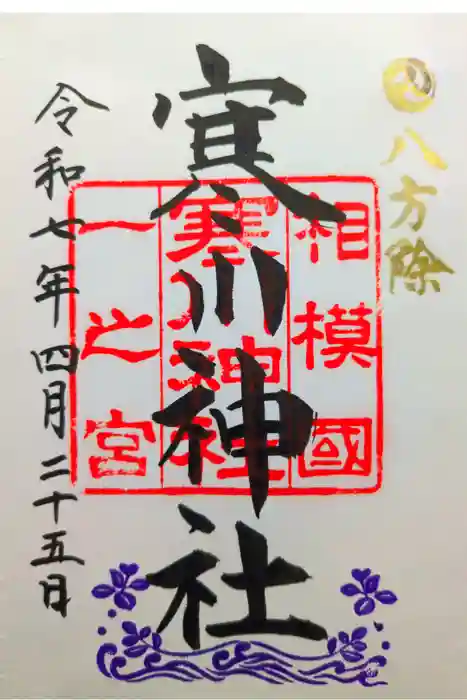 八方除
寒川神社
相模國
寒川神社
一之宮
令和七年四月二十五日